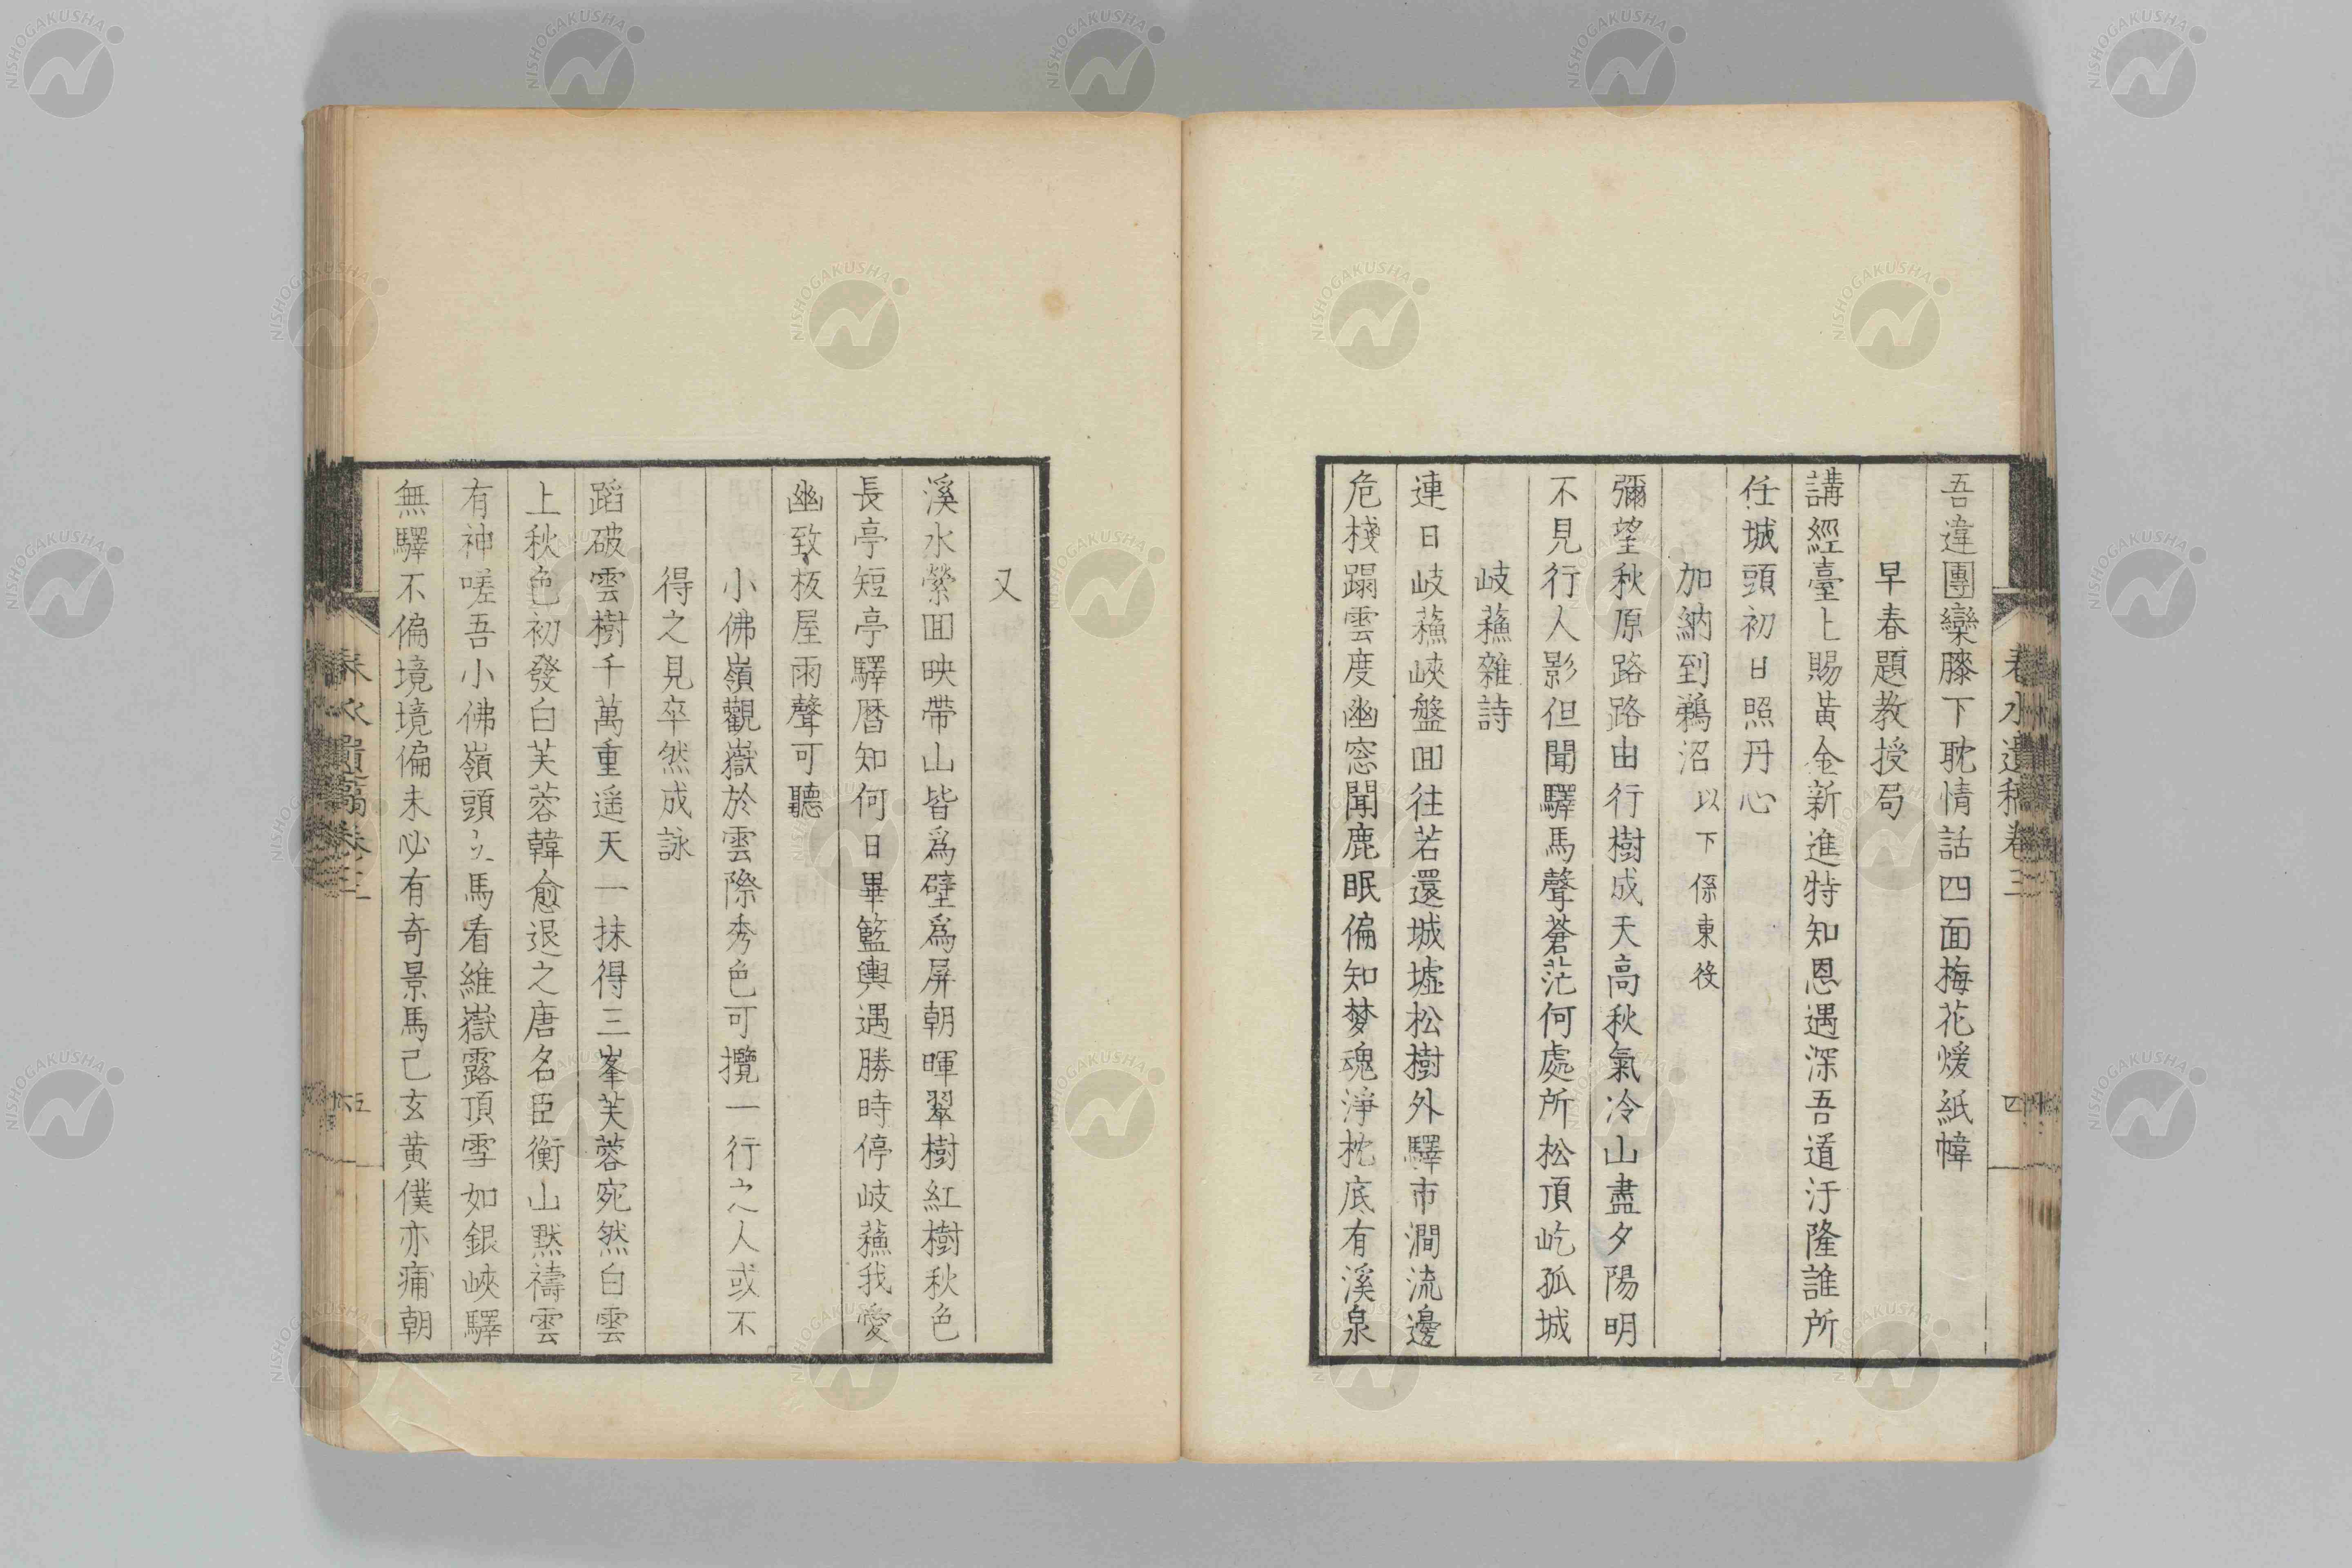 吾違團欒膝下耽情話四面梅花煖紙幃
早春題教授局
講經臺上賜黃金新進特知恩遇深吾道汙隆誰所
任城頭初日照丹心
加納到鵜沼以下係東役
彌望秋原路路由行樹成天高秋氣冷山盡夕陽明
不見行人影但聞驛馬聲蒼茫何處所松頂屹孤城
岐蘓雜詩
連日岐蘓峽盤回往若還城墟松樹外驛市澗流邊
危棧蹋雲度幽窓聞鹿眠偏知梦魂淨枕底有溪泉
春水遺稿卷三
四
又
溪水縈回映帶山皆爲壁爲屏朝暉翠樹紅樹秋色
長亭短亭驛曆知何日畢籃輿遇勝時停岐蘓我愛
幽致板屋雨聲可聽
小佛嶺觀嶽於雲際秀色可攬一行之人或不
得之見卒然成詠
蹈破雲樹千萬重遥天一抹得三峯芙蓉宛然白雲
上秋色初發白芙蓉韓愈退之唐名臣衡山黙禱雲
有神嗟吾小佛嶺頭立馬看維嶽露頂雪如銀峽驛
無驛不偏境境偏未必有奇景馬已玄黃僕亦痡朝
春水遺稿卷三
五
NISHOGAKUSHA